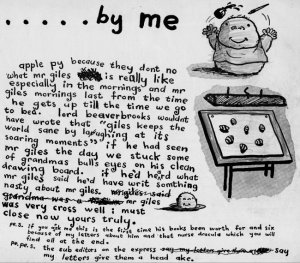 .....by me
apple py because they dont no
what mr giles is really like
especially in the mornings and mr
giles mornings last from the time
he gets up till the time we go
to bed. lord beaverbrooks wouldnt
have wrote that "giles keeps the
world sane by laughing at its
soaring moments" if he had seen
mr giles the day we stuck some
of grandmas bulls eyes on his clean
drawing board. if he'd heard what
mr giles said he'd have writ somthing
nasty about mr giles. mr giles said
grandma were a mr giles
was very cross well i must
close now yours truly.
p.s. if you ask me this is the first time his books been worth for and six
because of my letters about him and that nurse dracula which you will
find all at the end.
pr.ps. the sub editors on the express say my letters give them a say
my letters give them a head ake.